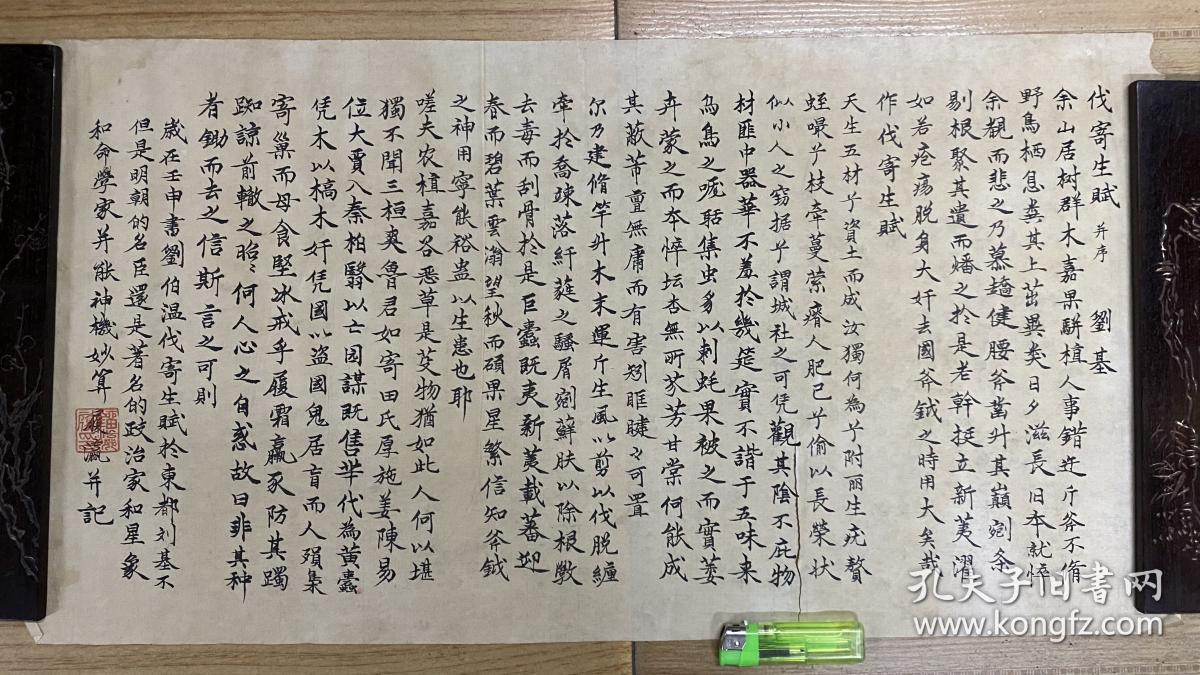 伐寄生賦 并序 劉基
余山居树群木嘉果駢植人事錯迕斤斧不脩
野鳥栖息粪其上茁異类日夕滋長旧本就悴
余覩而悲之乃募趫健腰斧凿升其巔剜条
剔根聚其遺而燔之於是老幹挺立新荑濯
如若疮瘍脱身大奸去國斧鉞之時用大矣哉
作伐寄生賦
天生五材兮資土而成汝獨何為兮附丽生疣贅
蛭嘬兮枝牵蔓萦瘠人肥己兮偷以長榮状
似小人之窃据兮謂城社之可凭觀其陰不庇物
材匪中器華不羞於几筵實不諧于五味来
烏鳥之咙聒集虫豸以刺蚝果被之而實萎
卉蒙之而本悴坛杏無所芬芳甘棠何能成
其蔽芾亶無庸而有害矧睢睫之可置
尔乃建脩竿升木末運斤生風以剪以伐脱纏
牵於喬竦落纤蕤之騷屑剜蘚肤以除根斅
去毒而刮骨於是巨蠹既夷新荑載蕃迎
春而碧葉雲滃望秋而碩果星繁信知斧鉞
之神用寧能裕蛊以生患也耶
嗟夫农植嘉谷恶草是芟物猶如此人何以堪
獨不聞三桓爽魯君如寄田氏厚施姜陳易
位大賈入秦柏翳以亡园謀既售芈代為黄蠹
凭木以槁木奸凭國以盗國鬼居肓而人殞集
寄巢而母食堅冰戒乎履霜羸豕防其躅
踟諒前轍之昭々何人心之自惑故曰非其种
者鋤而去之信斯言之可則
歲在壬申書劉伯温伐寄生賦於東都刘基不
但是明朝的名臣還是著名的政治家和星象
和命學家并能神機妙算 履瀛并記
孔夫子旧书网
www.kongfz.com